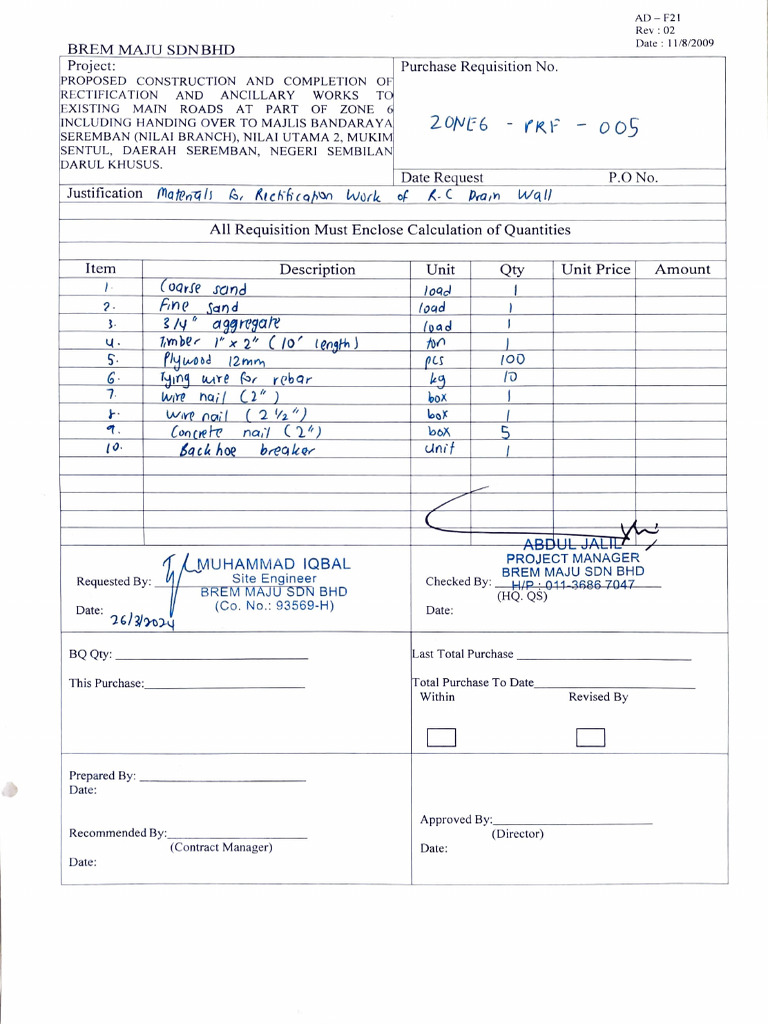 AD – F21
Rev : 02
Date : 11/8/2009
BREM MAJU SDN BHD
Project:
PROPOSED CONSTRUCTION AND COMPLETION OF
RECTIFICATION AND ANCILLARY WORKS TO
EXISTING MAIN ROADS AT PART OF ZONE 6
INCLUDING HANDING OVER TO MAJLIS BANDARAYA
SEREMBAN (NILAI BRANCH), NILAI UTAMA 2, MUKIM
SENTUL, DAERAH SEREMBAN, NEGERI SEMBILAN
DARUL KHUSUS.
Purchase Requisition No.
ZONE6 - PRF - 005
Date Request P.O No.
Justification Materials for Rectification Work of R.C Drain Wall
All Requisition Must Enclose Calculation of Quantities
Item Description Unit Qty Unit Price Amount
1. Coarse sand load 1
2. Fine sand load 1
3. 3/4" aggregate load 1
4. Timber 1" x 2" (10' length) ton 1
5. Plywood 12mm pcs 100
6. Tying wire for rebar kg 10
7. Wire nail (2") box 1
8. Wire nail (2 1/2") box 1
9. Concrete nail (2") box 5
10. Backhoe breaker unit 1
MUHAMMAD IQBAL
Site Engineer
BREM MAJU SDN BHD
(Co. No.: 93569-H)
Requested By:
Date: 26/3/2024
ABDUL JALIL
PROJECT MANAGER
BREM MAJU SDN BHD
H/P : 011-3686 7047
Checked By:
(HQ. QS)
Date:
BQ Qty:
This Purchase:
Last Total Purchase
Total Purchase To Date
Within Revised By
Prepared By:
Date:
Recommended By:
(Contract Manager)
Date:
Approved By:
(Director)
Date: